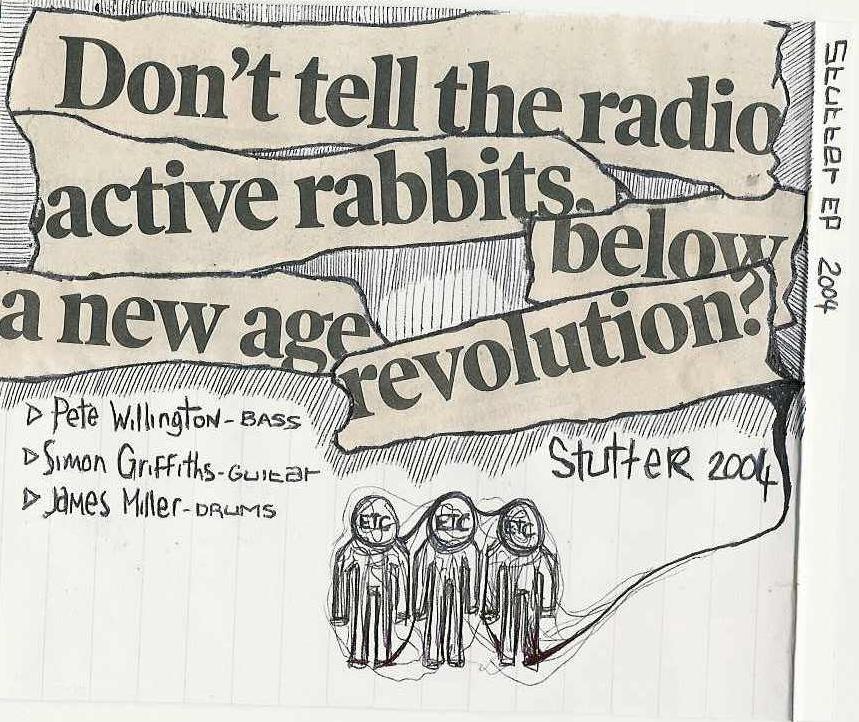 Don't tell the radio
active rabbits.
below
a new age
revolution?
▷ Pete Willington - BASS
▷ Simon Griffiths - Guitar
▷ James Miller - DRUMS
Stutter 2004
ETC ETC ETC
Stutter EP 2004